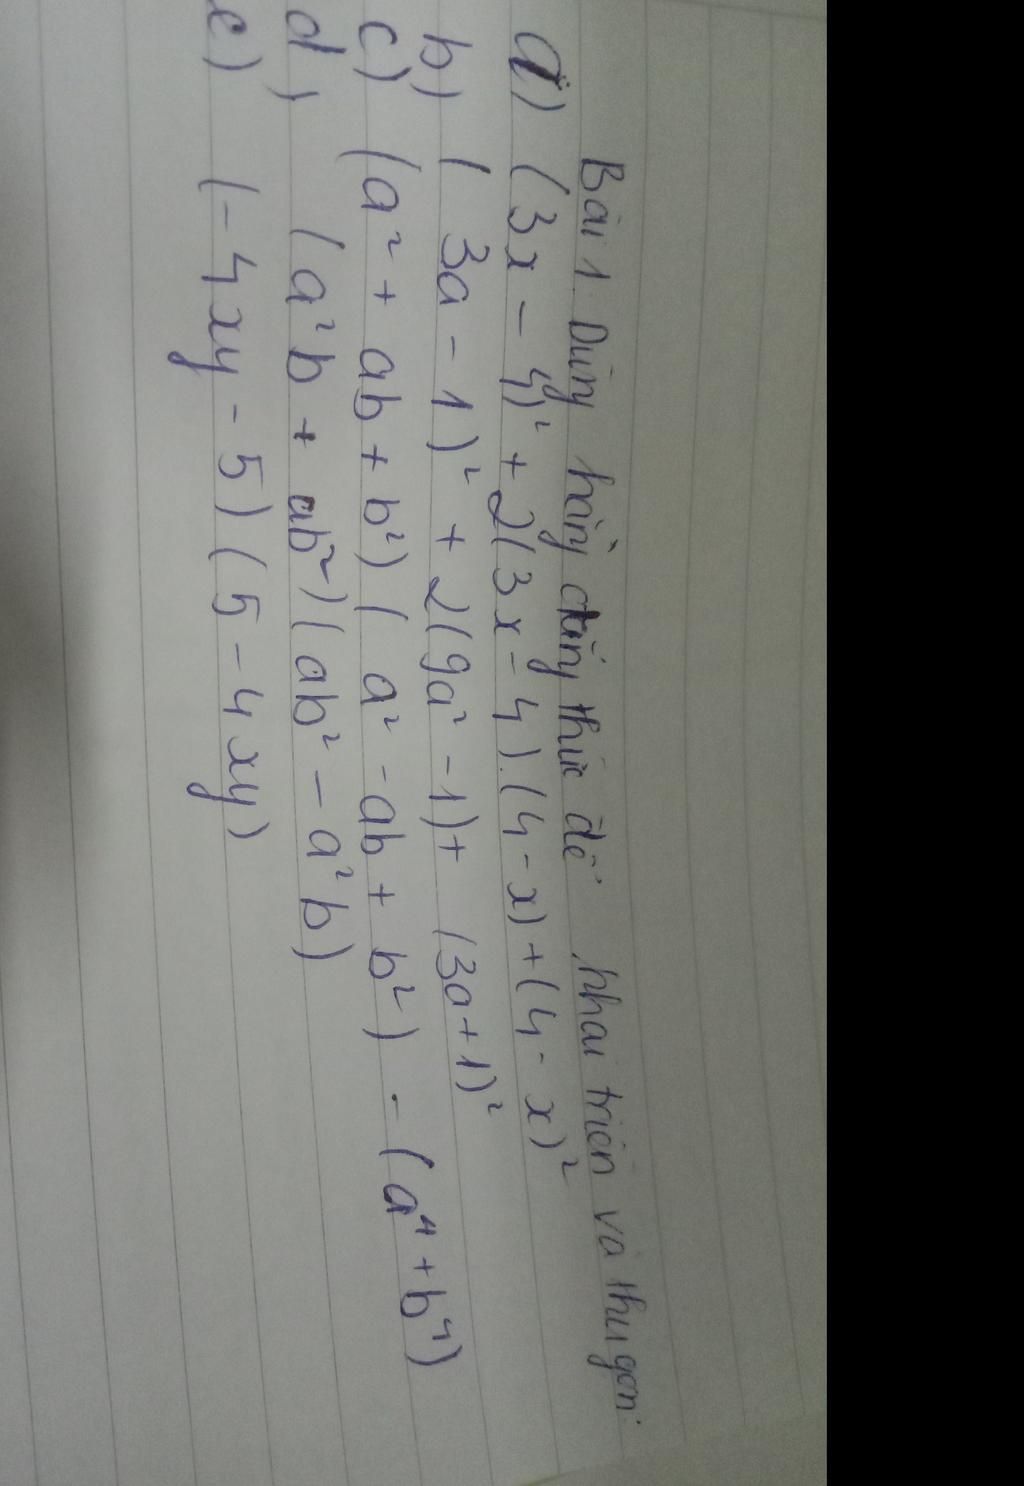 Bài 1. Dùng hằng đẳng thức để khai triển và thu gọn:
a) (3x - 4)² + 2(3x - 4).(4 - x) + (4 - x)²
b) (3a - 1)² + 2(9a² - 1) + (3a + 1)²
c) (a² + ab + b²)(a² - ab + b²) - (a⁴ + b⁴)
d) (a²b + ab²)(ab² - a²b)
e) (-4xy - 5)(5 - 4xy)